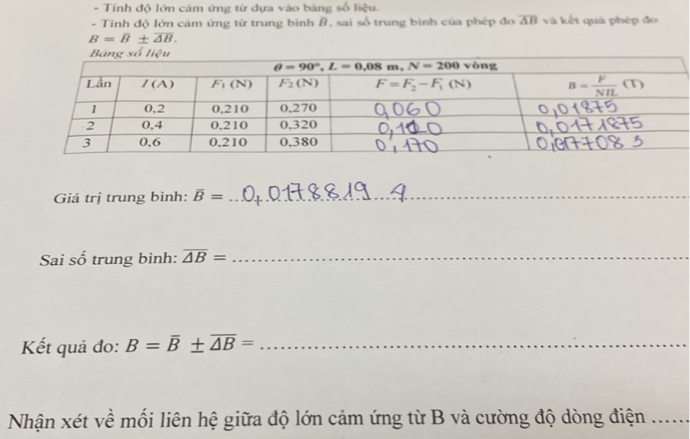 - Tính độ lớn cảm ứng từ dựa vào bảng số liệu.
- Tính độ lớn cảm ứng từ trung bình B̄, sai số trung bình của phép đo ΔB̅ và kết quả phép đo
B = B̄ ± ΔB̅.
Bảng số liệu
θ = 90°, L = 0,08 m, N = 200 vòng
Lần I (A) F₁ (N) F₂ (N) F = F₂ – F₁ (N) B = F/NIL (T)
1 0,2 0,210 0,270 0,060 0,01875
2 0,4 0,210 0,320 0,110 0,0171875
3 0,6 0,210 0,380 0,170 0,0177083
Giá trị trung bình: B̄ = ...0,0178819 4
Sai số trung bình: ΔB̅ = ...
Kết quả đo: B = B̄ ± ΔB̅ = ...
Nhận xét về mối liên hệ giữa độ lớn cảm ứng từ B và cường độ dòng điện ......